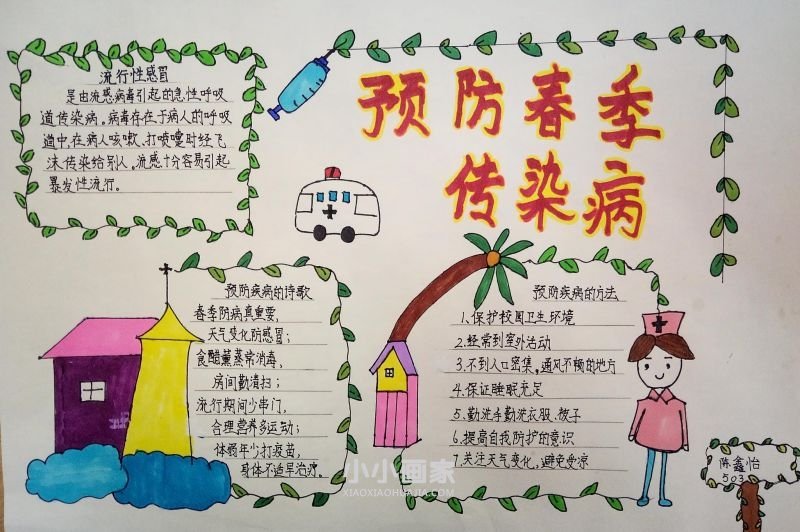 流行性感冒
是由流感病毒引起的急性呼吸
道传染病。病毒存在于病人的呼吸
道中,在病人咳嗽、打喷嚏时经飞
沫传染给别人。流感十分容易引起
暴发性流行。
预防春季
传染病
预防疾病的诗歌
春季防病真重要,
天气变化防感冒;
食醋薰蒸常消毒,
房间勤清扫;
流行期间少串门,
合理营养多运动;
体弱年少打疫苗,
身体不适早治疗。
预防疾病的方法
1.保护校园卫生环境
2.经常到室外活动
3.不到人口密集,通风不畅的地方
4.保证睡眠充足
5.勤洗手勤洗衣服、被子
6.提高自我防护的意识
7.关注天气变化,避免受凉
陈鑫怡
503
小小画家
XIAOXIAOHUAJIA.COM